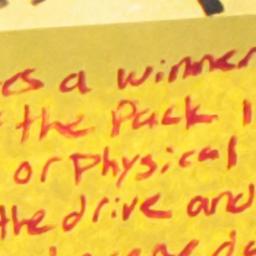 a winner
the Pack
or physical
the drive and